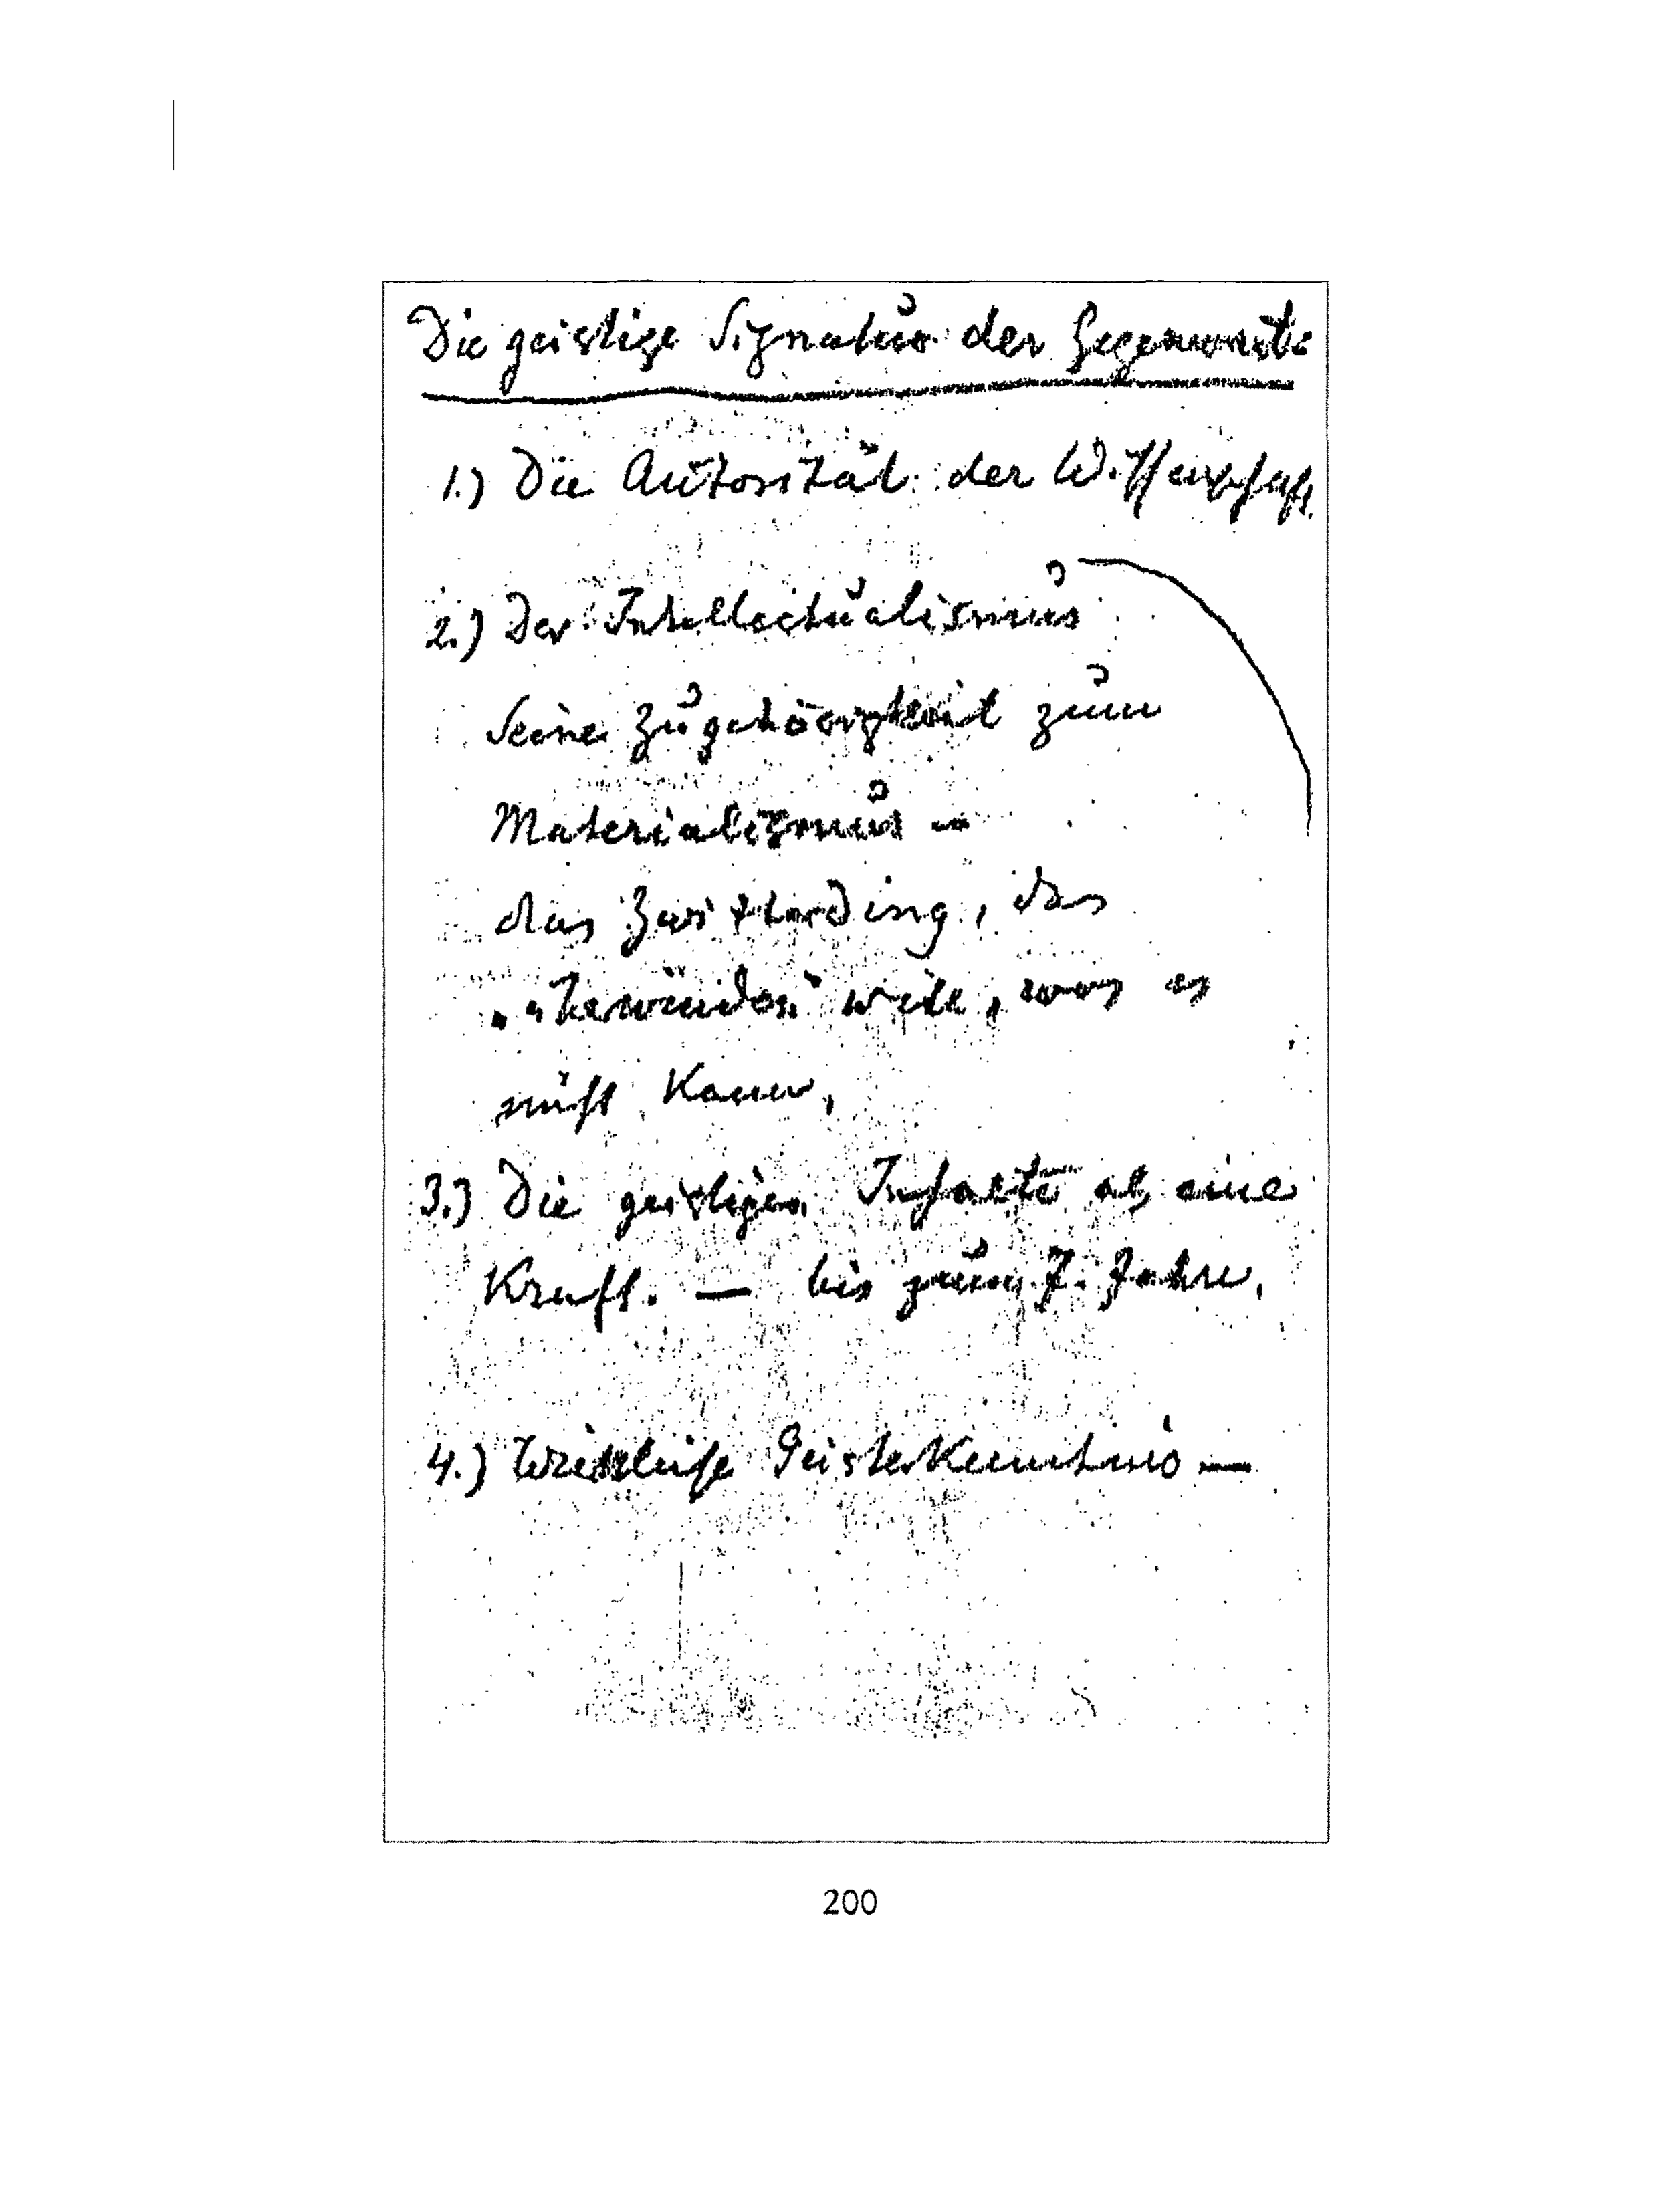 Die geistige Signatur der Gegenwart:
1.) Die Autorität der Wissenschaft.
2.) Der Intellectualismus
seine Zugehörigkeit zum
Materialismus -
das ding, das
will, was es
nicht kann,
3.) Die geistigen Inhalte als eine
Kraft. — bis zum 7. Jahre,
4.) Wirkliche Geisterkenntnis —
200